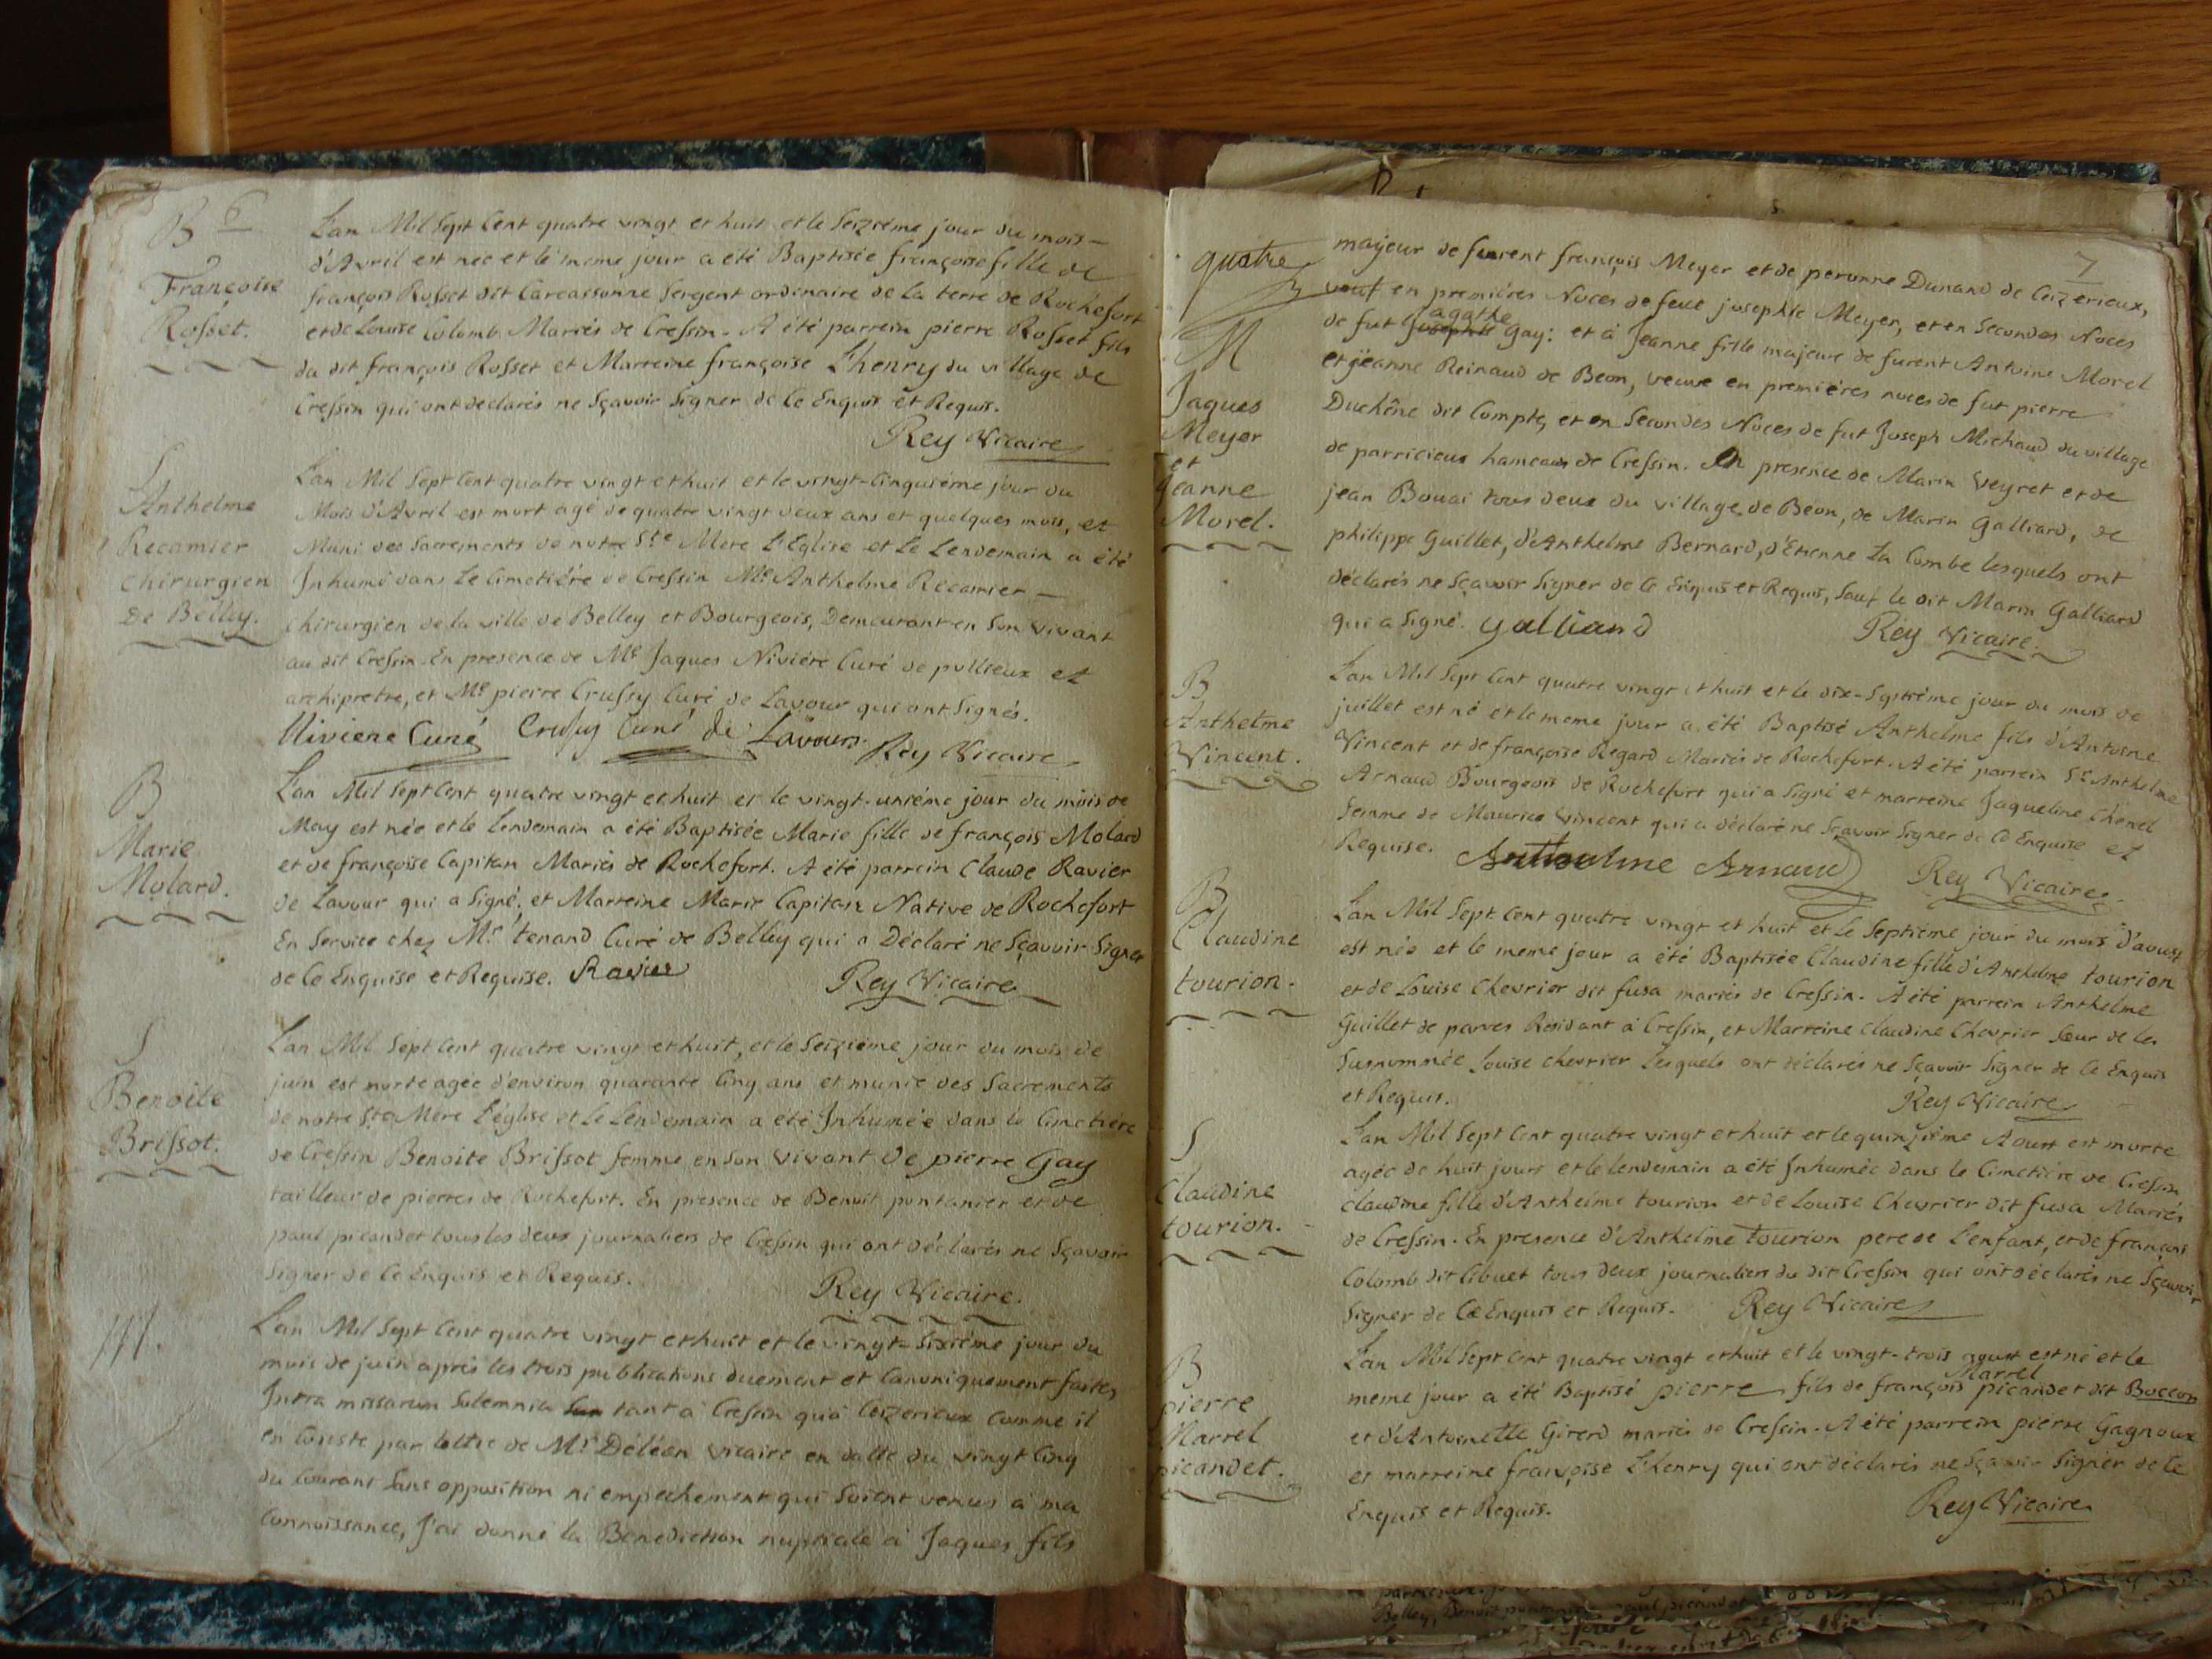 6
B
Françoise
Rosset.
Lan Mil Sept Cent quatre vingt et huit et le Seizième jour du mois
d'Avril est née et le meme jour a été Baptisée françoise fille de
françois Rosset dit Carcassonne Sergent ordinaire de la terre de Rochefort
et de Louise Colomb Mariés de Cressin. A été parrein pierre Rosset fils
du dit françois Rosset et Marreine françoise Lhenry du village de
Cressin qui ont declarés ne Sçavoir Signer de Ce Enquis et Requis.
Rey Vicaire
S
Anthelme
Recamier
Chirurgien
De Belley.
Lan Mil Sept Cent quatre vingt et huit et le vingt-Cinquiéme jour du
Mois d'Avril est mort agé de quatre vingt deux ans et quelques mois, et
Muni des Sacrements de notre Ste Mere L'Eglise et Le Lendemain a été
Inhumé dans Le Cimetiére de Cressin Me Anthelme Recamier
Chirurgien de la ville de Belley et Bourgeois, Demeurant en Son Vivant
au dit Cressin. En presence de Me Jaques Niviére Curé de pollieux et
archipretre, et Me pierre Crussy Curé de Lavour qui ont Signés.
Niviere Curé Crussy Curé de Lavours Rey Vicaire
B
Marie
Molard.
Lan Mil Sept Cent quatre vingt et huit et le vingt-uniéme jour du mois de
May est née et le Lendemain a été Baptisée Marie fille de françois Molard
et de françoise Capitan Mariés de Rochefort. A été parrein Claude Ravier
de Lavour qui a Signé, et Marreine Marie Capitan Native de Rochefort
En Service chez Mr tenand Curé de Belley qui a Déclaré ne Sçavoir Signer
de Ce Enquise et Requise. Ravier Rey Vicaire
S
Benoite
Brissot.
Lan Mil Sept Cent quatre vingt et huit, et le Seiziéme jour du mois de
juin est morte agée d'environ quarante Cinq ans et munie des Sacrements
de notre Ste Mere L'église et Le Lendemain a été Inhumée dans le Cimetiére
de Cressin Benoite Brissot femme en Son Vivant de pierre Gay
tailleur de pierres de Rochefort. En presence de Benoit pontanier et de
paul picandet tous les deux journaliers de Cressin qui ont déclarés ne Sçavoir
Signer de Ce Enquis et Requis. Rey Vicaire.
M.
Lan Mil Sept Cent quatre vingt et huit et le vingt-Sixiéme jour du
mois de juin aprés les trois publications duement et Canoniquement faites,
Intra missarum Solemnia tant à Cressin qu'à Ceizerieux Comme il
en Conste par lettre de Mr Déléan vicaire en datte du vingt Cinq
du Courant Sans opposition ni empechement qui Soient venus à ma
Connoissance, J'ai donné la Benediction nuptiale à Jaques fils
7
quatre
M
Jaques
Meyer
et
Jeanne
Morel.
majeur de furent françois Meyer et de peronne Dunand de Ceizerieux,
veuf en premiéres Noces de feue josephte Meyer, et en Secondes Noces
agathe
de fut josephte Gay: et à Jeanne fille majeure de furent Antoine Morel
et jeanne Reinaud de Beon, veuve en premiéres noces de fut pierre
Duchêne dit Compte, et en Secondes Noces de fut Joseph Michaud du village
de parricieux hameau de Cressin. En presence de Marin Veyret et de
jean Bouai tous deux du village de Béon, de Marin Galliard, de
philippe Guillet, d'Anthelme Bernard, d'Etienne La Combe lesquels ont
déclarés ne Sçavoir Signer de Ce Enquis et Requis, Sauf le dit Marin Galliard
qui a Signé. galliand Rey Vicaire.
B
Anthelme
Vincent.
Lan Mil Sept Cent quatre vingt et huit et le dix-Septiéme jour du mois de
juillet est né et le meme jour a été Baptisé Anthelme fils d'Antoine
Vincent et de françoise Regard Mariés de Rochefort. A été parrein Sr Anthelme
Arnaud Bourgeois de Rochefort qui a Signé et marreine Jaqueline Chenel
femme de Maurice Vincent qui a déclaré ne Sçavoir Signer de Ce Enquise et
Requise. Anthelme Arnaud Rey Vicaire.
B
Claudine
tourion.
Lan Mil Sept Cent quatre vingt et huit et Le Septiéme jour du mois d'aoust
est née et le meme jour a été Baptisée Claudine fille d'Anthelme tourion
et de Louise Chevrier dit fusa mariés de Cressin. A été parrein Anthelme
Guillet de parves Résidant à Cressin, et Marreine Claudine Chevrier Sœur de la
Susnommée Louise chevrier Lesquels ont déclarés ne Sçavoir Signer de Ce Enquis
et Requis. Rey Vicaire
S
Claudine
tourion.
Lan Mil Sept Cent quatre vingt et huit et le quinziéme Aoust est morte
agée de huit jours et le Lendemain a été Inhumée dans le Cimetiére de Cressin
Claudine fille d'Anthelme tourion et de Louise Chevrier dit fusa Mariés
de Cressin. En presence d'Anthelme tourion pere de L'enfant, et de françois
Colomb dit Cibuet tous deux journaliers du dit Cressin qui ont déclarés ne Sçavoir
Signer de Ce Enquis et Requis. Rey Vicaire
B
pierre
Marrel
picandet.
Lan Mil Sept Cent quatre vingt et huit et le vingt-trois aoust est né et le
Marrel
meme jour a été Baptisé pierre fils de françois picandet dit Boccon
et d'Antoinette Girerd mariés de Cressin. A été parrein pierre Gagnoux
et marreine françoise Lhenry qui ont déclarés ne Sçavoir Signer de Ce
Enquis et Requis. Rey Vicaire